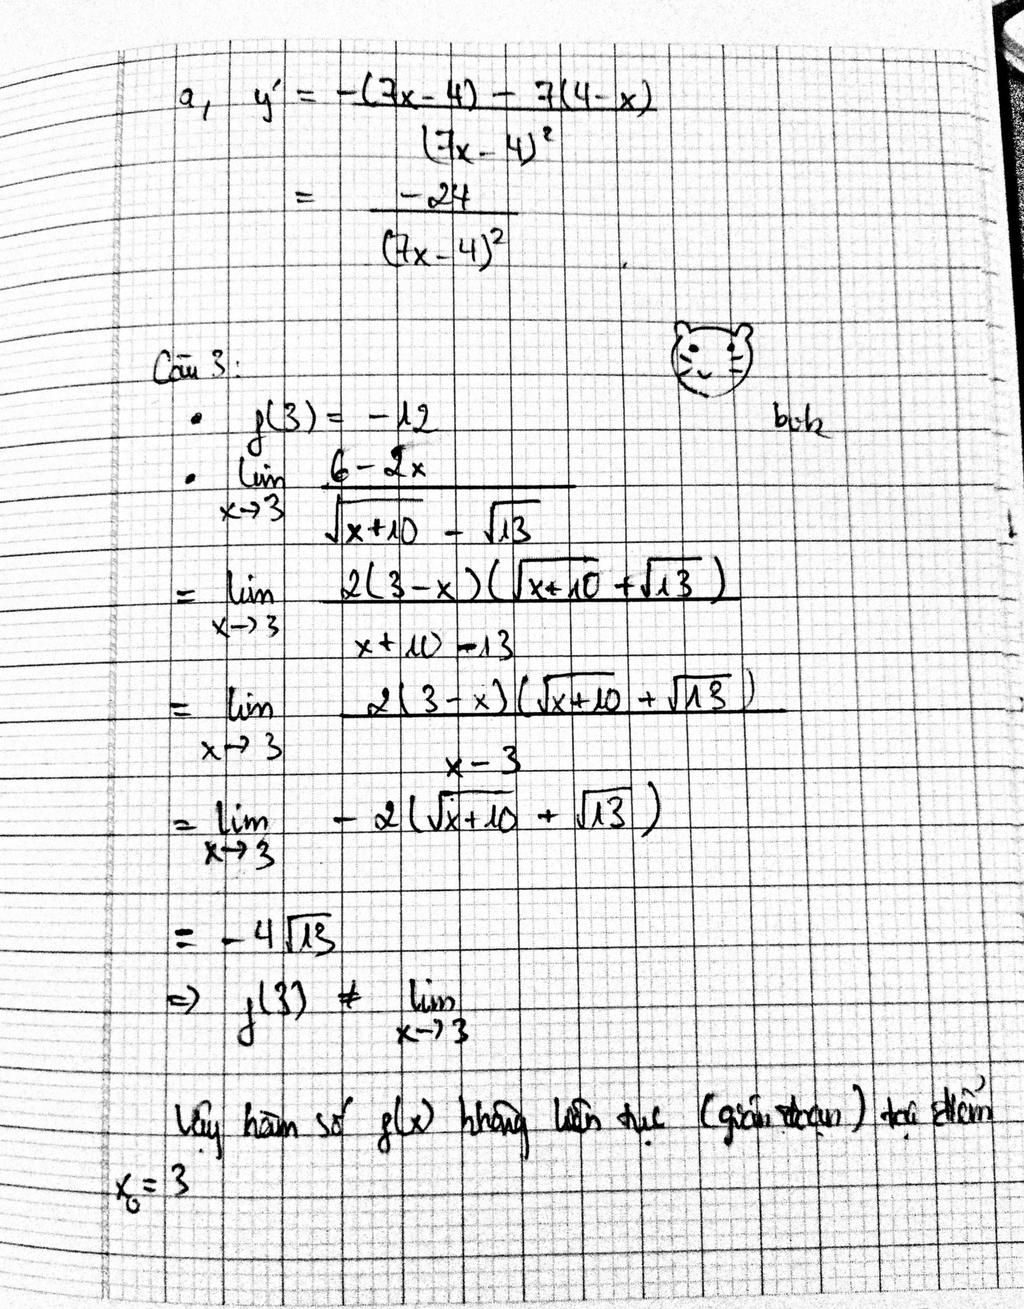 a, y' = -(7x-4) - 7(4-x) / (7x-4)²
= -24 / (7x-4)²
Câu 3:
• f(3) = -12
bok
• lim x→3 6-2x / √(x+10) - √13
= lim x→3 2(3-x)(√(x+10) + √13) / x+10-13
= lim x→3 2(3-x)(√(x+10) + √13) / x-3
= lim x→3 -2(√(x+10) + √13)
= -4√13
=> f(3) ≠ lim x→3
Vậy hàm số f(x) không liên tục (gián đoạn) tại điểm
x₀ = 3